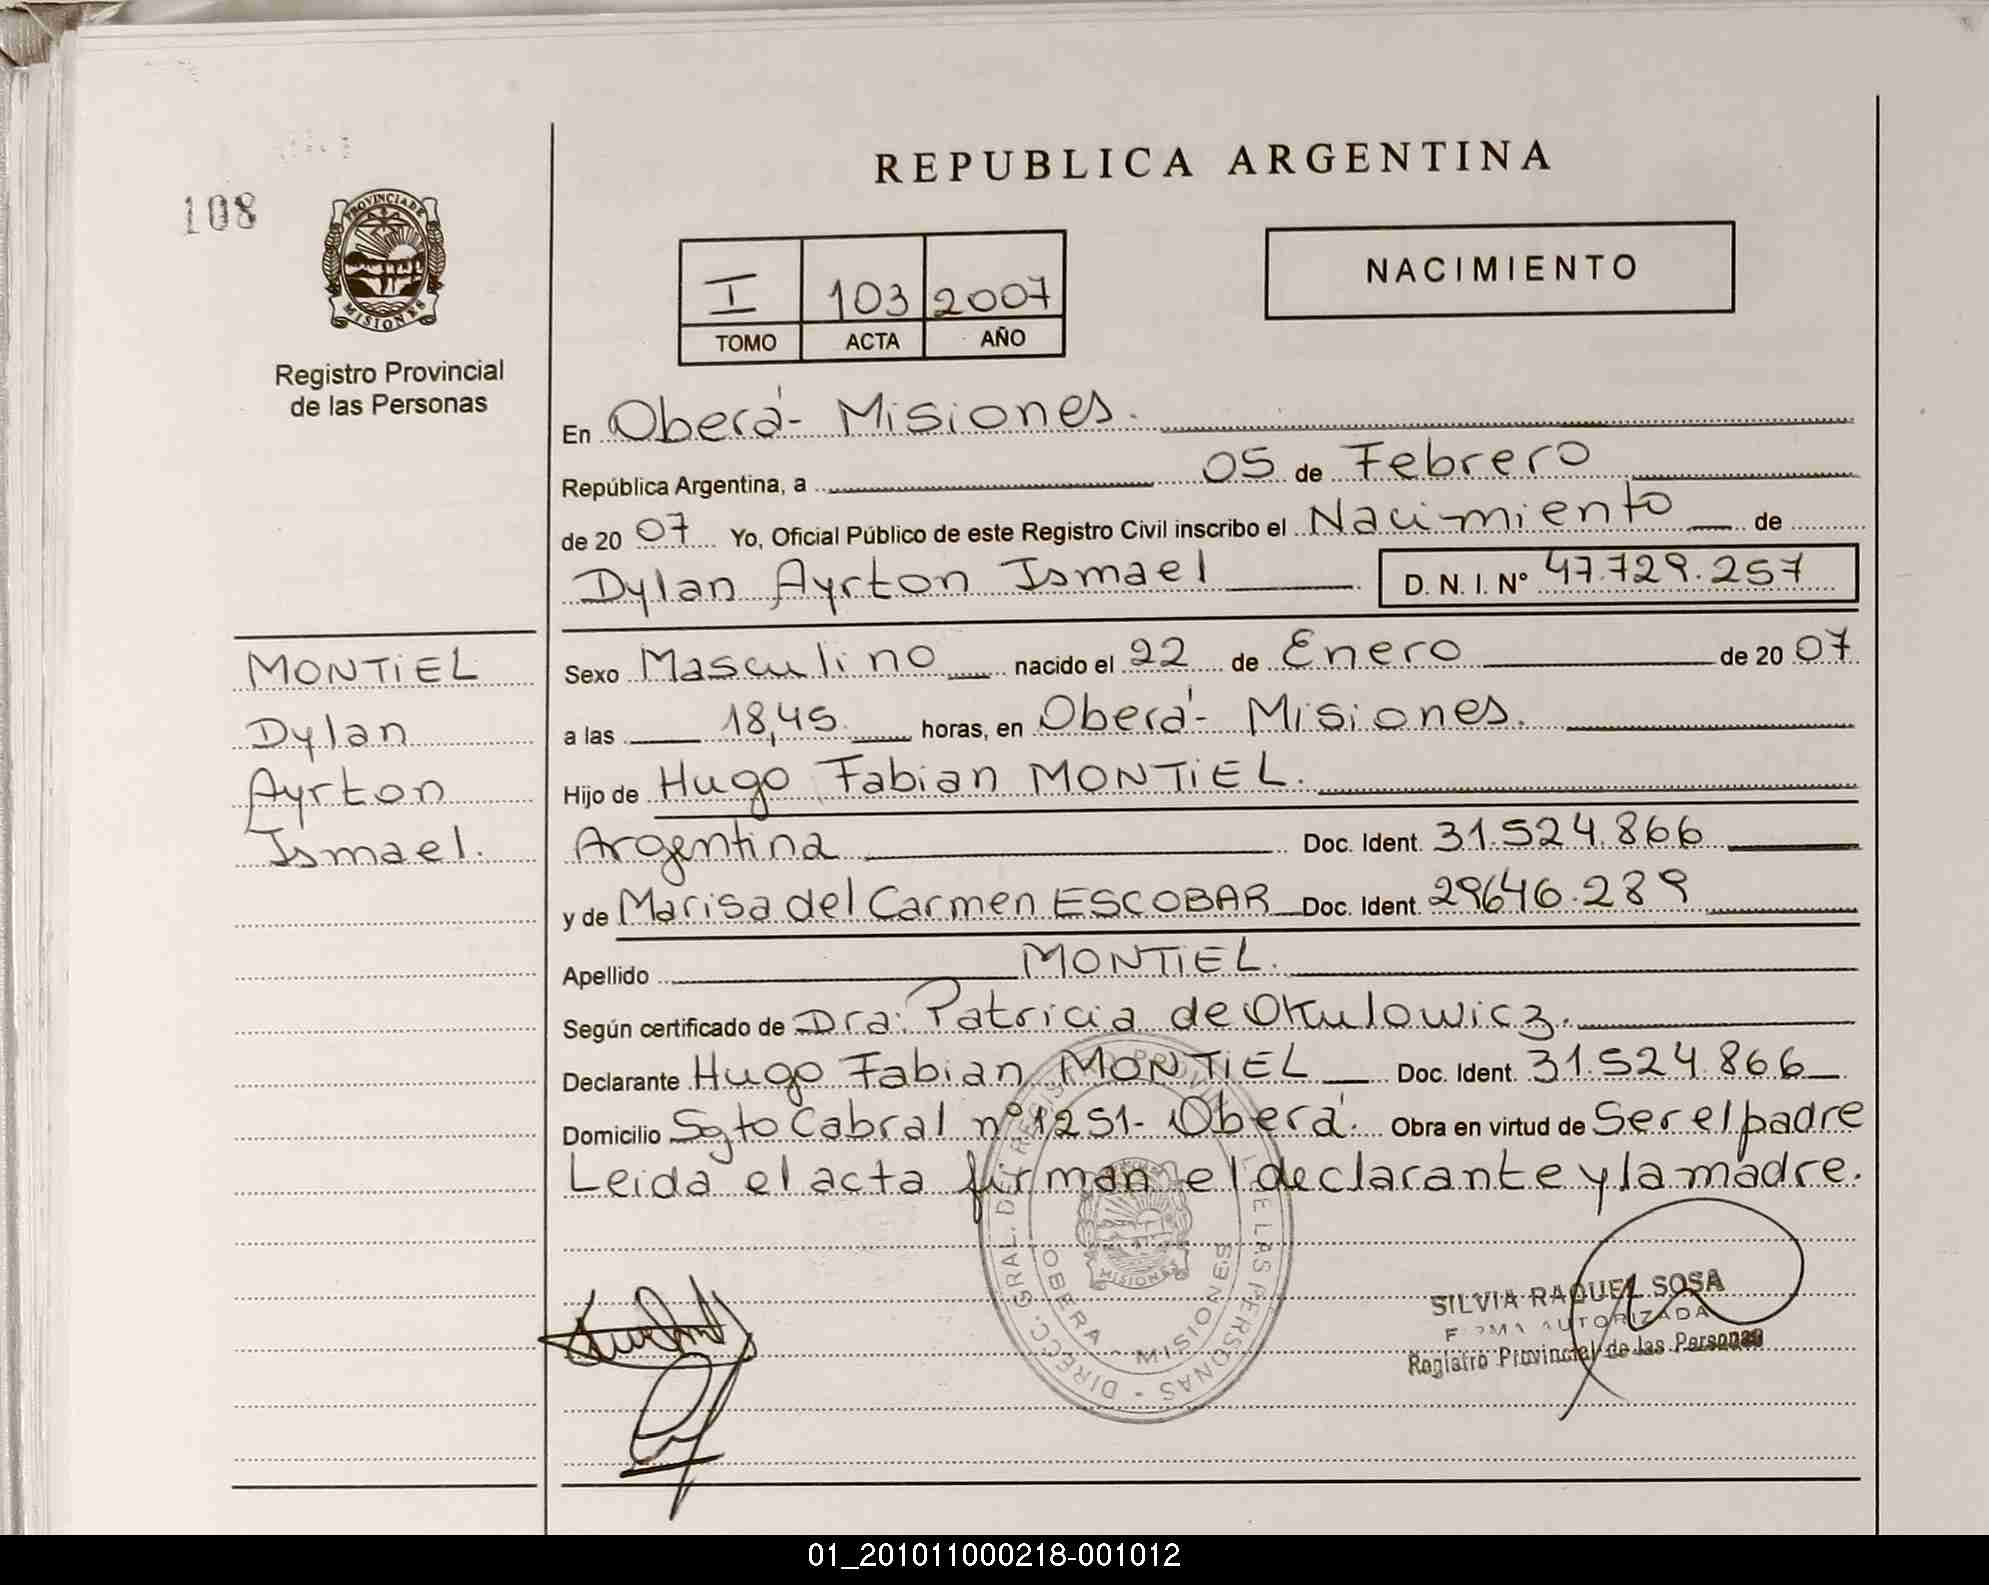 REPUBLICA ARGENTINA
108
PROVINCIA DE
MISIONES
Registro Provincial
de las Personas
I 103 2007
TOMO ACTA AÑO
NACIMIENTO
En Oberá - Misiones.
República Argentina, a 05 de Febrero
de 2007 Yo, Oficial Público de este Registro Civil inscribo el Nacimiento de
Dylan Ayrton Ismael D. N. I. N° 47.729.257
MONTIEL
Dylan
Ayrton
Ismael.
Sexo Masculino nacido el 22 de Enero de 2007
a las 18,45 horas, en Oberá - Misiones.
Hijo de Hugo Fabian MONTIEL.
Argentina Doc. Ident. 31.524.866
y de Marisa del Carmen ESCOBAR Doc. Ident. 29646.289
Apellido MONTIEL.
Según certificado de Dra: Patricia de Okulowicz.
Declarante Hugo Fabian MONTIEL Doc. Ident. 31.524.866
Domicilio Sgto Cabral n° 1251 - Oberá. Obra en virtud de Ser el padre
Leida el acta firman el declarante y la madre.
DIRECC. GRAL. DEL REGISTRO PROVINCIAL DE LAS PERSONAS
OBERA - MISIONES
MISIONES
SILVIA RAQUEL SOSA
FIRMA AUTORIZADA
Registro Provincial de las Personas
01_201011000218-001012